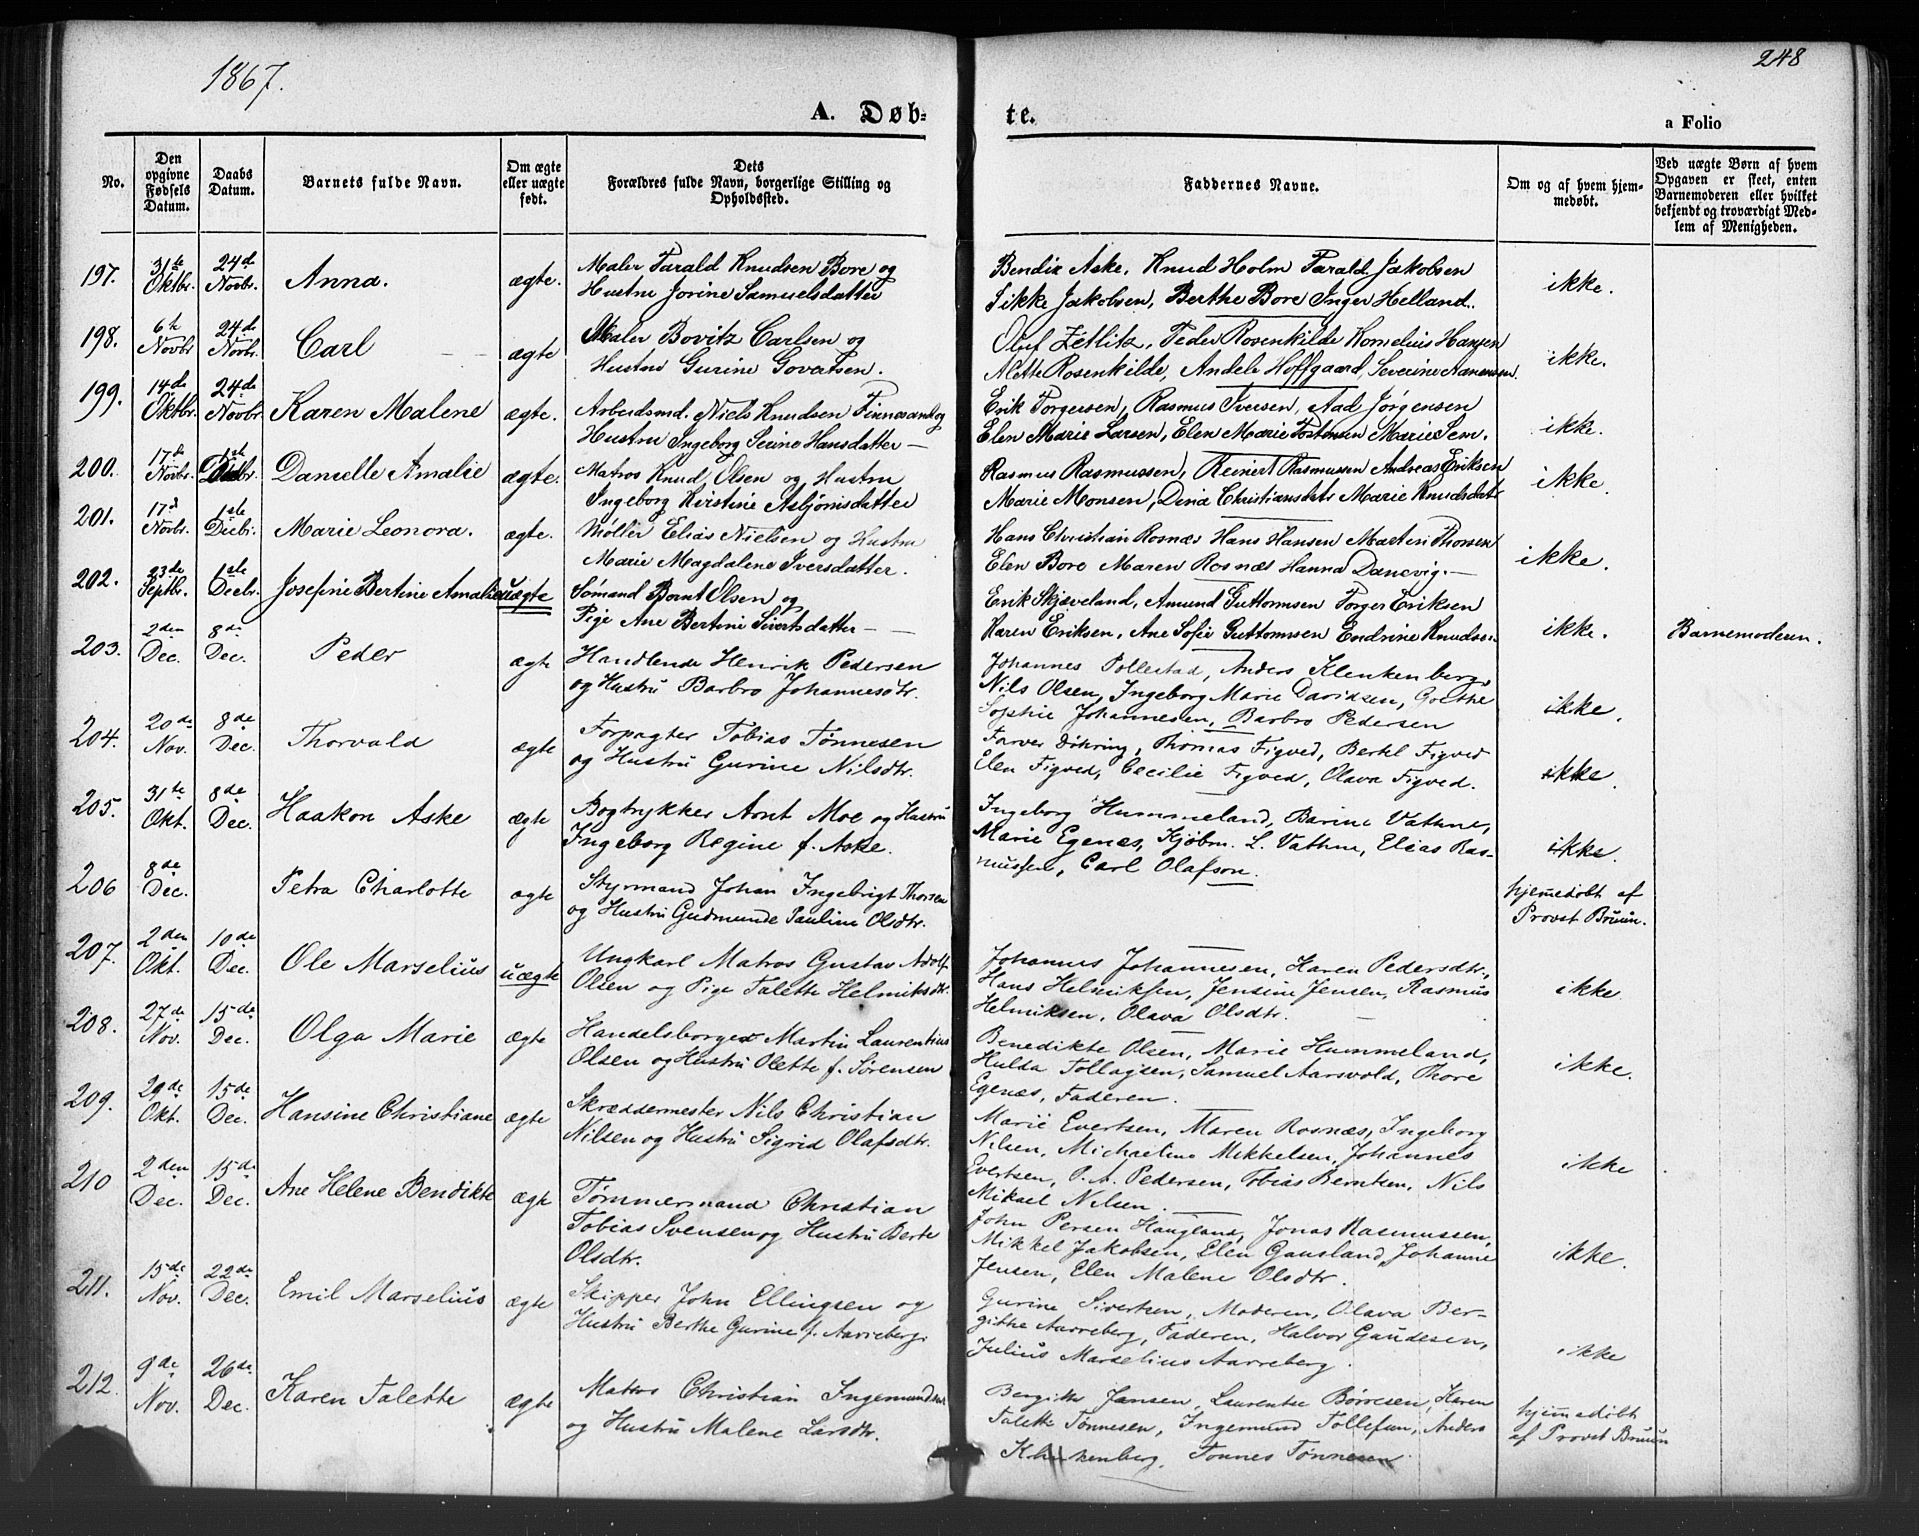 1867.
248
A. Døb-
te.
a Folio
No.
Den opgivne Fødsels Datum.
Daabs Datum.
Barnets fulde Navn.
Om ægte eller uægte født.
Dets Forældres fulde Navn, borgerlige Stilling og Opholdssted.
Faddernes Navne.
Om og af hvem hjemmedøbt.
Ved uægte Børn af hvem Opgaven er skeet, enten Barnemoderen eller hvilket bekjendt og troværdigt Medlem af Menigheden.
197. 31te Oktbr. 24de Novbr. Anna. ægte.
Maler Tarald Knudsen Bore og
Hustru Jorine Samuelsdatter
Bendix Aske, Knud Holm Tarald Jakobsen
Sikke Jakobsen, Berthe Bore Inger Helland.
ikke.
198. 6te Novbr 24de Novbr. Carl ægte
Maler Bovitz Carlsen og
Hustru Gurine Govertsen.
Oluf Zetlitz, Peder Rosenkilde Kornelius Hansen
Alette Rosenkilde, Andele Hoffgaard, Severine Aanensen.
ikke.
199. 14de Oktbr. 24de Novbr. Karen Malene ægte.
Arbeidsmd. Niels Knudsen Finnesand og
Hustru Ingeborg Serine Hansdatter
Erik Torgersen, Rasmus Iversen, Aad Jørgensen
Elen Marie Larsen, Elen Marie Tostensen Marie Sem.
ikke.
200. 17de Novbr. 1ste Decbr. Danielle Amalie ægte.
Matros Knud Olsen og Hustru
Ingeborg Kirstine Asbjörnsdatter
Rasmus Rasmussen, Reinert Rasmussen Andreas Eriksen
Marie Monsen, Dena Christiansdatr Marie Knudsdatr
ikke.
201. 17d Novbr. 1ste Decbr. Marie Leonora. ægte.
Møller Elias Nielsen og Hustru
Marie Magdalene Iversdatter.
Hans Christian Rosnæs Hans Hansen Martin Thorsen
Elen Bore Maren Rosnæs Hanna Danevig.
ikke.
202. 23de Septbr. 1ste Decbr. Josefine Bertine Amalie uægte
Sømand Bornt Olsen og
Pige Ane Bertine Sivertsdatter
Erik Skjæveland, Amund Guttormsen Torger Eriksen
Karen Eriksen, Ane Sofie Guttormsen Endrine Knudsen
ikke. Barnemoderen.
203. 2den Dec. 8de Dec. Peder ægte
Handlende Henrik Pedersen
og Hustru Barbro Johannesdtr.
Johannes Pollestad, Anders Klenkenberg,
Nils Olsen, Ingeborg Marie Davidsen, Grethe
Sophie Johannesen, Barbro Pedersen
ikke.
204. 20de Nov. 8de Dec. Thorvald ægte
Forpagter Tobias Tønnesen
og Hustru Gurine Nilsdtr.
Farver Døhring, Thomas Figved, Bertel Figved
Elen Figved, Cecilie Figved, Olava Figved.
ikke.
205. 31te Okt. 8de Dec. Haakon Aske ægte
Bogtrykker Arnt Moe og Hustru
Ingeborg Regine f. Aske.
Ingeborg Hummeland, Barine Vathne,
Marie Egenæs, Kjøbm. L. Vathne, Elias Ras-
mussen, Carl Olafson.
ikke.
206 8de Dec. Petra Charlotte ægte
Styrmand Johan Ingebrigt Thorsen
og Hustru Gudmunde Pauline Olsdtr.
hjemedøbt af
Provst Bruun.
207. 2den Okt. 10de Dec. Ole Marselius uægte
Ungkarl Matros Gustav Adolf
Olsen og Pige Talette Helmiksdtr.
Johannes Johannesen, Karen Pedersdtr.,
Hans Helmiksen, Jensine Jensen, Rasmus
Helmiksen, Olava Olsdtr.
ikke
208. 27de Nov. 15de Dec. Olga Marie ægte
Handelsborger Martin Laurentius
Olsen og Hustru Olette f. Sörensen
Benedikte Olsen, Marie Hummeland,
Hulda Tollagsen, Samuel Aarsvold, Thore
Egenæs, Faderen.
ikke.
209. 29de Okt. 15de Dec. Hansine Christiane ægte
Skræddermester Nils Christian
Nilsen og Hustru Sigrid Olafsdtr.
Marie Evertsen, Maren Rosnæs, Ingeborg
Nilsen, Michaeline Mikkelsen, Johannes
Evertsen, P. A. Pedersen, Tobias Berntsen, Nils
Mikael Nilsen.
ikke
210 2den Dec. 15de Dec. Ane Helene Bendikte ægte
Tømmermand Christian
Tobias Svensen og Hustru Berte
Olsdtr.
John Persen Haugland, Jonas Rasmussen,
Mikkel Jakobsen, Elen Gausland, Johanne
Jensen, Elen Malene Olsdtr.
ikke.
211. 15de Nov. 22de Dec. Emil Marselius ægte
Skipper John Ellingsen og
Hustru Berthe Gurine f. Aarreberg.
Gurine Sivertsen, Moderen, Olava Ber-
githe Aarreberg, Faderen, Halvor Gaudesen,
Julius Marselius Aarreberg.
ikke
212. 9de Nov. 26de Dec. Karen Talette ægte
Matros Christian Ingemundsen
og Hustru Malene Larsdtr.
Bergitte Jansen, Laurentse Børresen, Karen
Talette Tønnesen, Ingemund Tollefsen, Anders
Klenkenberg, Tønnes Tønnesen
hjemedøbt
af Provst Bruun